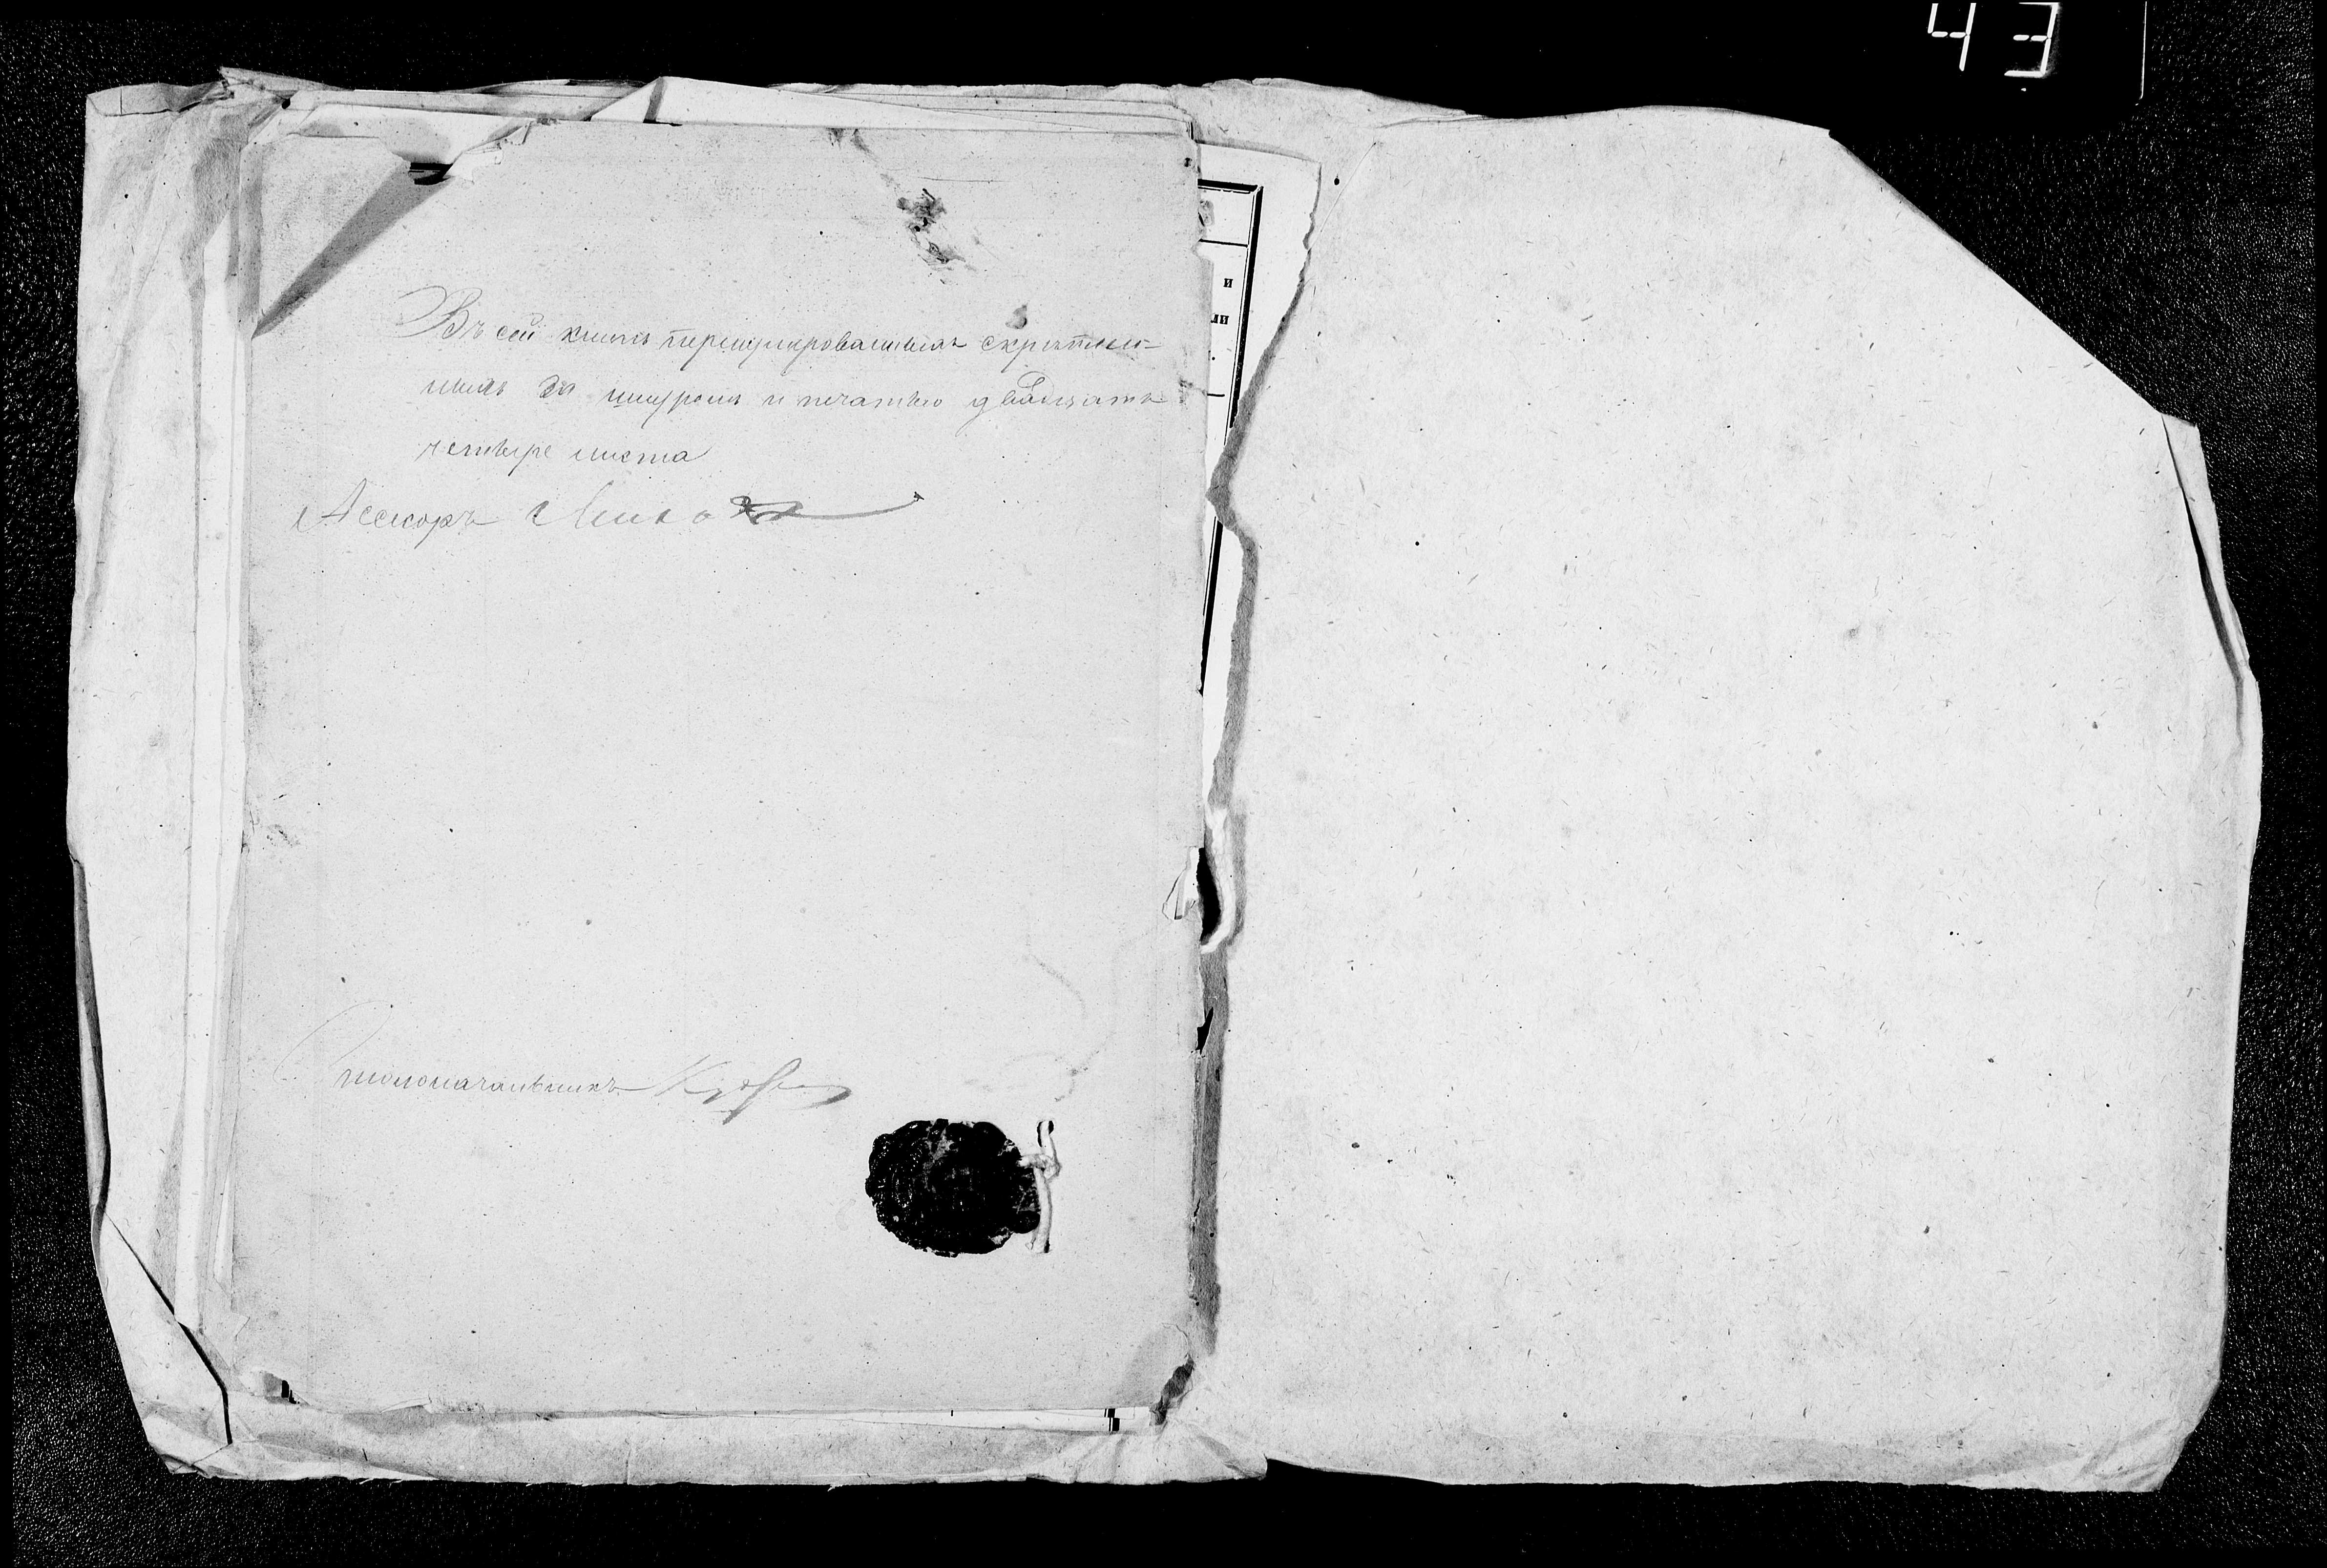 43
Въ сей книгѣ перенумерованныхъ скрѣплен-
ныхъ за шнуромъ и печатью двадцать
четыре листа
Ассесоръ
Столоначальникъ
и
ли